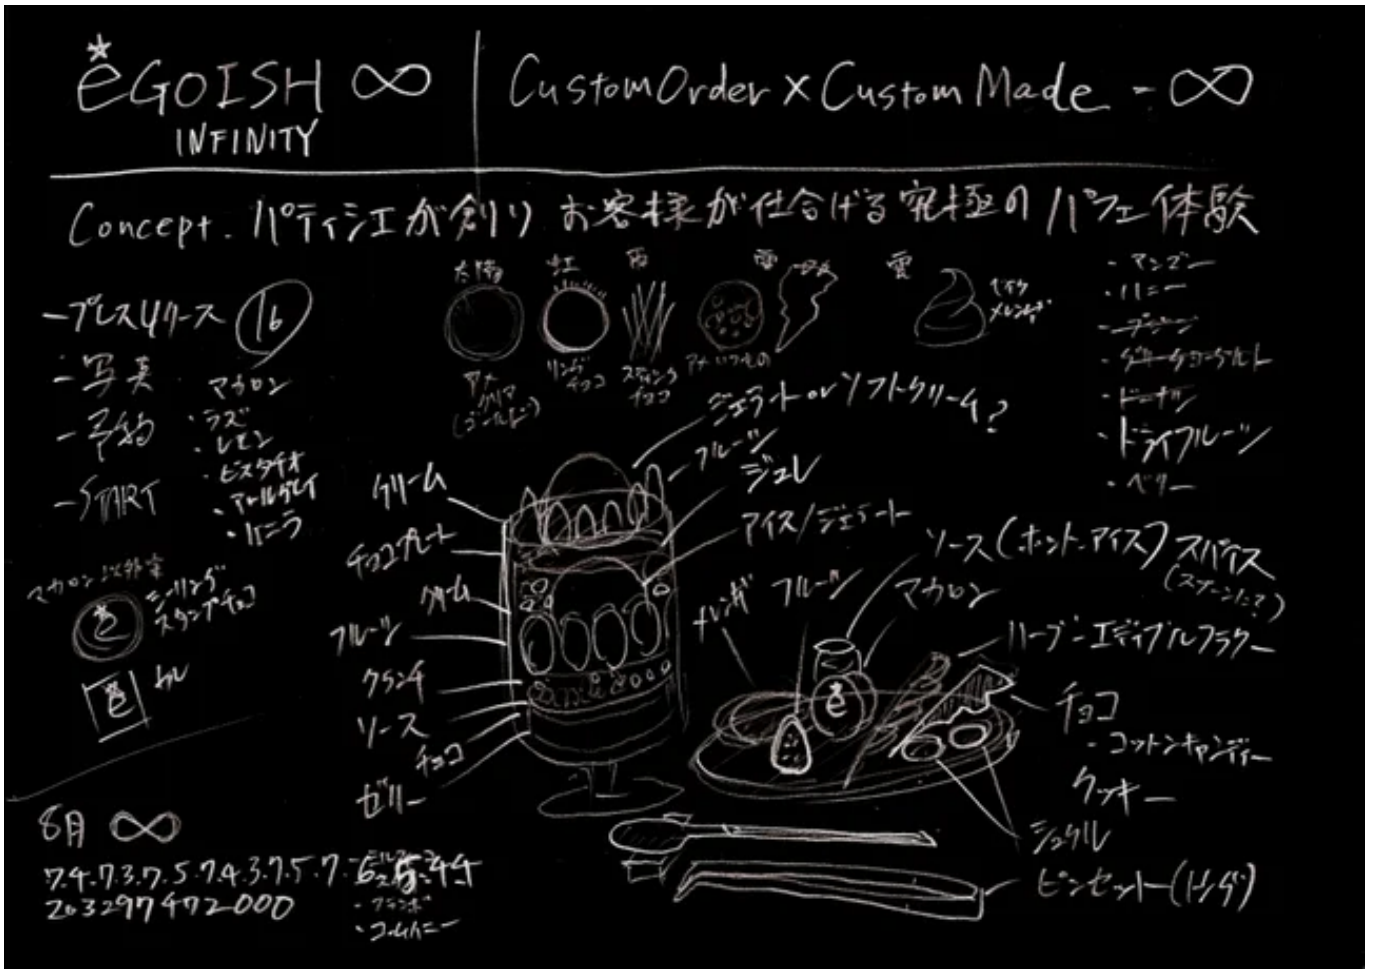 ëGOISH ∞
INFINITY
Custom Order × Custom Made = ∞
Concept. パティシエが創り お客様が仕上げる究極のパフェ体験
- プレスリリース 16
- 写真
- 予約
- START
マカロン
・ラズ
・レモン
・ピスタチオ
・アールグレイ
・バニラ
マカロン以外案
ë
シーリング
スタンプチョコ
ë
太陽
アメ
クリア
(ゴールド)
虹
リング
チョコ
雨
スティック
チョコ
アメ いつもの
雲
ベイク
メレンゲ
・マンゴー
・ハニー
・グリークヨーグルト
・ドーナツ
・ドライフルーツ
・ベリー
ジェラート or ソフトクリーム?
フルーツ
ジュレ
アイス/ジェラート
クリーム
チョコプレート
クリーム
フルーツ
クランチ
ソース
チョコ
ゼリー
メレンゲ
フルーツ
マカロン
ソース(ホット、アイス) スパイス
(スプーンに?)
ハーブ・エディブルフラワー
ë
チョコ
・コットンキャンディー
クッキー
シュクル
ピンセット(トング)
8月 ∞
7.4.7.3.7.5.7.4.3.7.5.7.6.5.4.4
203297472000